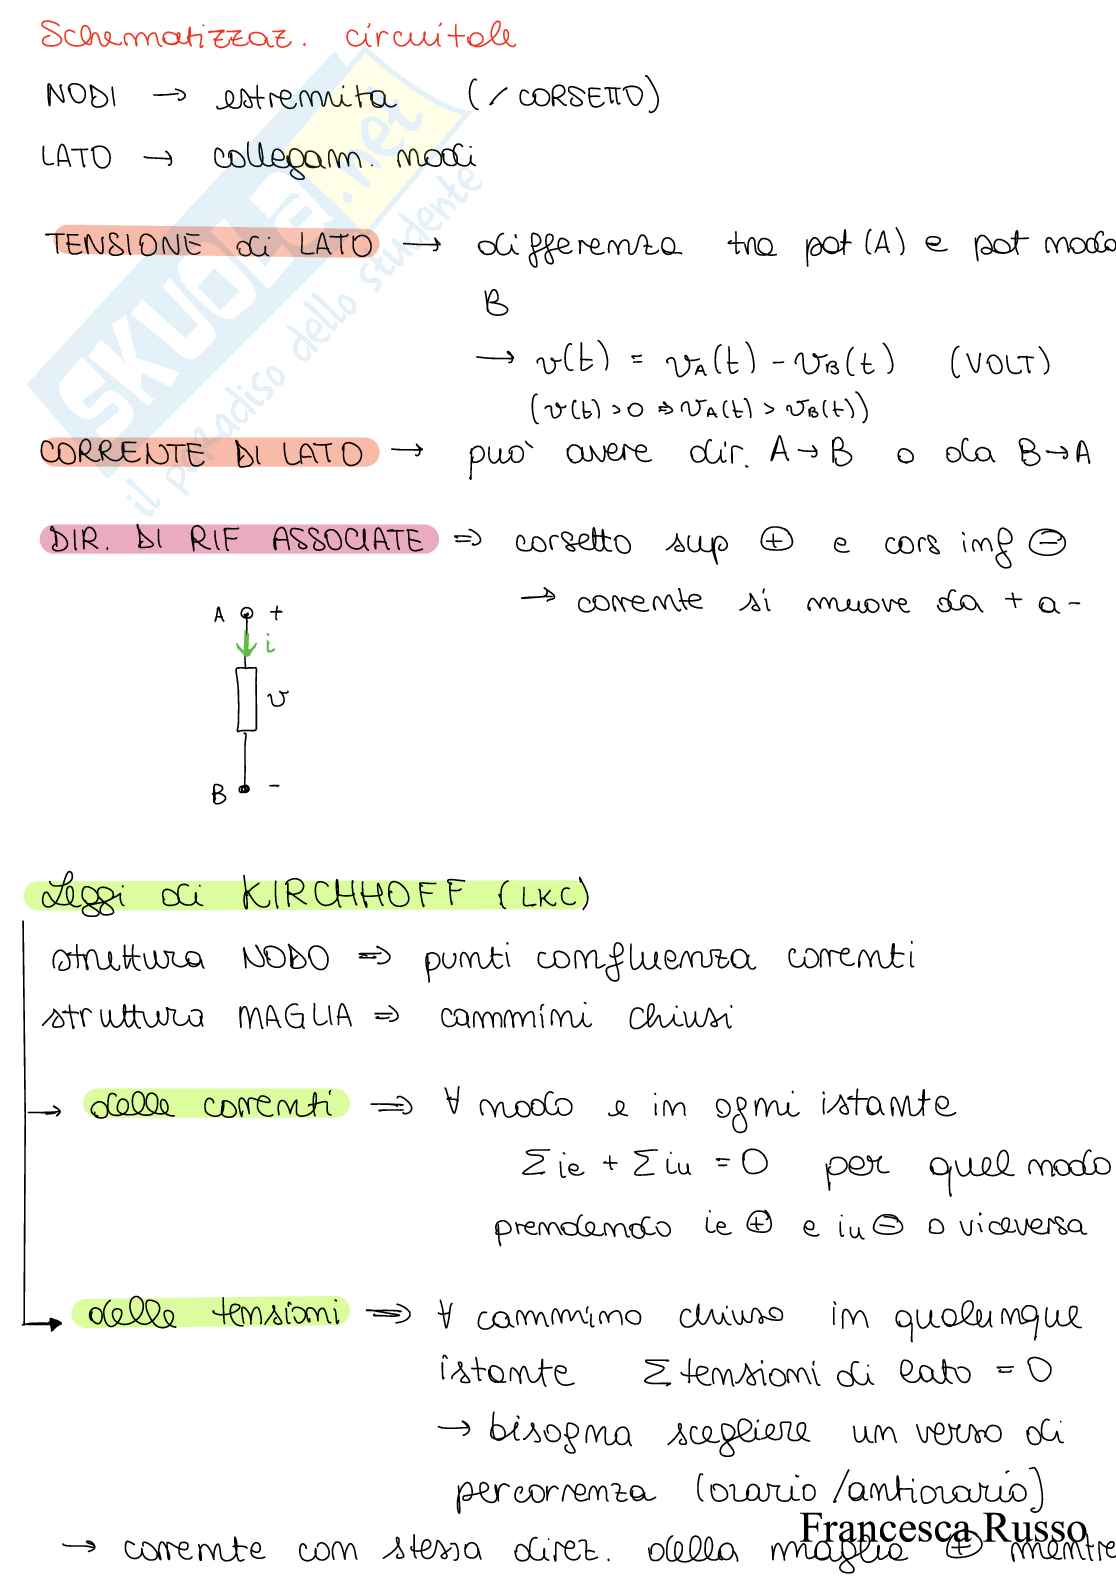 Schematizzaz. circuitale
NODI → estremita (/ CORSETTO)
LATO → collegam. nodi
TENSIONE di LATO → differenza tra pot (A) e pot nodo
B
→ v(t) = vA(t) - vB(t) (VOLT)
(v(t) > 0 ⇒ vA(t) > vB(t))
CORRENTE DI LATO → puo' avere dir. A → B o da B → A
DIR. DI RIF ASSOCIATE ⇒ corsetto sup ⊕ e cors inf ⊖
→ corrente si muove da + a -
A +
i
v
B -
Leggi di KIRCHHOFF (LKC)
struttura NODO ⇒ punti confluenza correnti
struttura MAGLIA ⇒ cammini chiusi
→ delle correnti ⇒ ∀ nodo e in ogni istante
Σ ie + Σ iu = 0 per quel nodo
prendendo ie ⊕ e iu ⊖ o viceversa
→ delle tensioni ⇒ ∀ cammino chiuso in qualunque
istante Σ tensioni di lato = 0
→ bisogna scegliere un verso di
percorrenza (orario / antiorario)
→ corrente con stessa direz. della maglia ⊕ mentre
Francesca Russo
SKUOLA.net
il paradiso dello studente